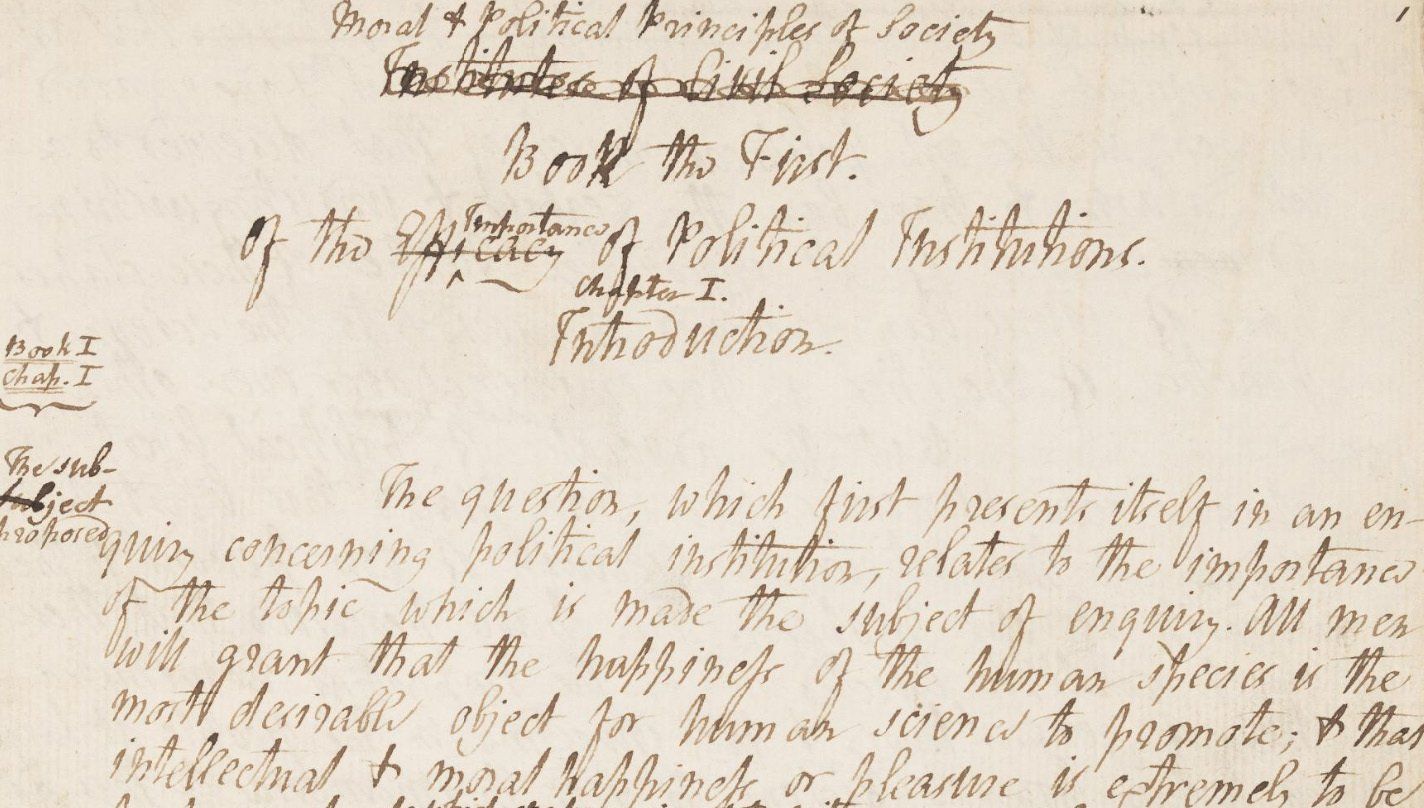 Moral & Political Principles of Society
Institutes of Civil Society
Book the First.
Importance
Of the Efficacy of Political Institutions.
Chapter I.
Introduction.
Book I
Chap. I
The sub-
ject
proposed
The question, which first presents itself in an en-
quiry concerning political institution, relates to the importance
of the topic which is made the subject of enquiry. All men
will grant that the happiness of the human species is the
most desirable object for human science to promote; & that
intellectual & moral happiness or pleasure is extremely to be